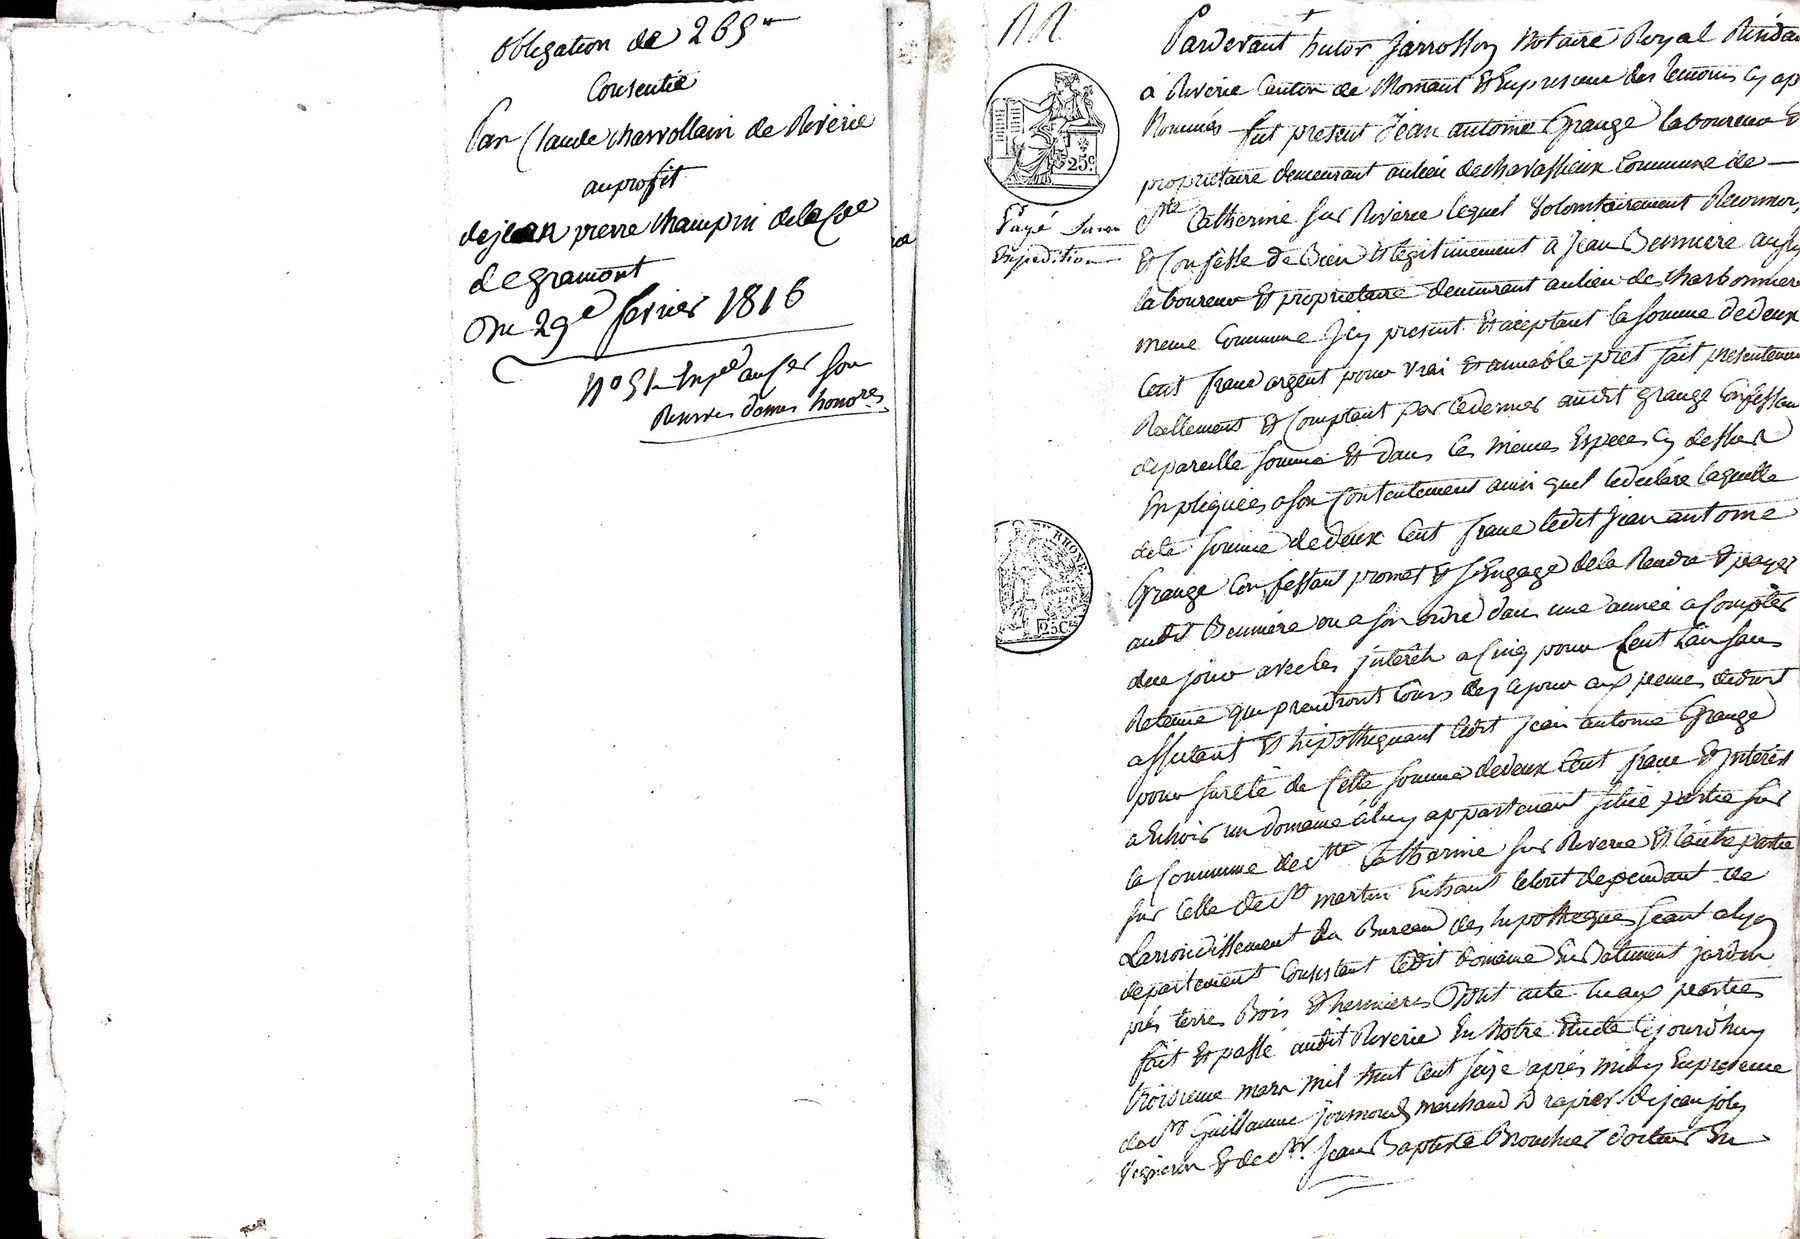 Obligation de 265 ₶
Consentie
Par Claude charvollain de Riverie
au profit
de jean pierre champin de la Coe
de gramont
Du 29e fevrier 1816
n° 51
Reserves honores
Pardevant hutor jarrosson Notaire Royal Residan
à Riverie Canton de Mornant Et En presence des temoins cy ap
Nommés fut present Jean antoine Grange laboureur &
proprietaire demeurant au lieu de chavassieux Commune de
Ste Catherine sur Riverie lequel Volontairement
Payé Sans
Expedition
Et Confesse de Bien & legitimement à Jean Benniere aussy
laboureur Et proprietaire demeurant au lieu de charbonniere
meme Commune Icy present Et aceptant la somme de deux
Cent franc argent pour vrai Et amiable prêt fait presentement
Reellement Et Comptant par ce dernier audit grange Confessan
de pareille somme Et dans les memes Especes cy dessus
Expliquées a son Contentement ainsi quel le declare laquelle
dite somme de deux Cent franc ledit Jean antoine
Grange Confessant promet & s'Engage de la Rendre & payer
25 c.
RHONE
25 Cs
audit Benniere ou a son ordre dans une année a Compter
de ce jour avec les jnterêts a Cinq pour Cent l'an sans
Retenue qui prendront Cours des ce jour aux peines de droit
affectant Et hipothequant ledit jean antoine Grange
pour sureté de Cette somme de deux Cent franc Et jnterêts
a Echoir un domaine à luy appartenant situé partie sur
la Commune de Ste Catherine sur Riverie Et l'autre partie
sur Celle de St martin En haut le tout dependant de
L'arrondissement du Bureau des hipotheques seant a lyon
departement Consistant ledit domaine En Batiment jardin
prés terres Bois Et hermieres Dont acte lu aux parties
fait Et passé audit Riverie En notre Etude Cejourd'huy
troisieme mars mil huit Cent seize aprés midy En presence
de Sr Guillaume journoud marchand drapier
Vigneron & de Sr Jean Baptiste Brouchier docteur En